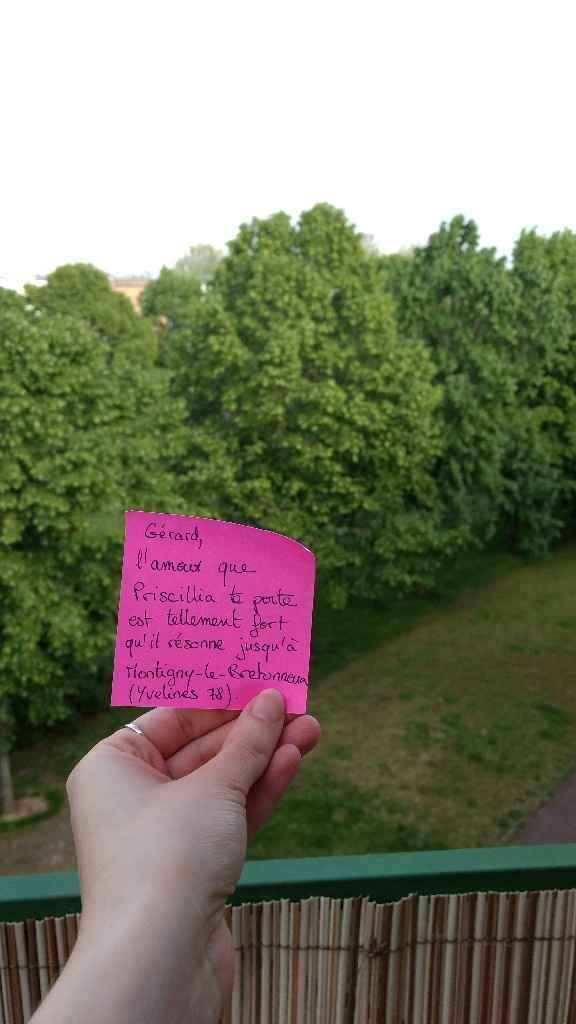 Gérard,
l'amour que
Priscillia te porte
est tellement fort
qu'il résonne jusqu'à
Montigny-le-Bretonneux
(Yvelines 78).